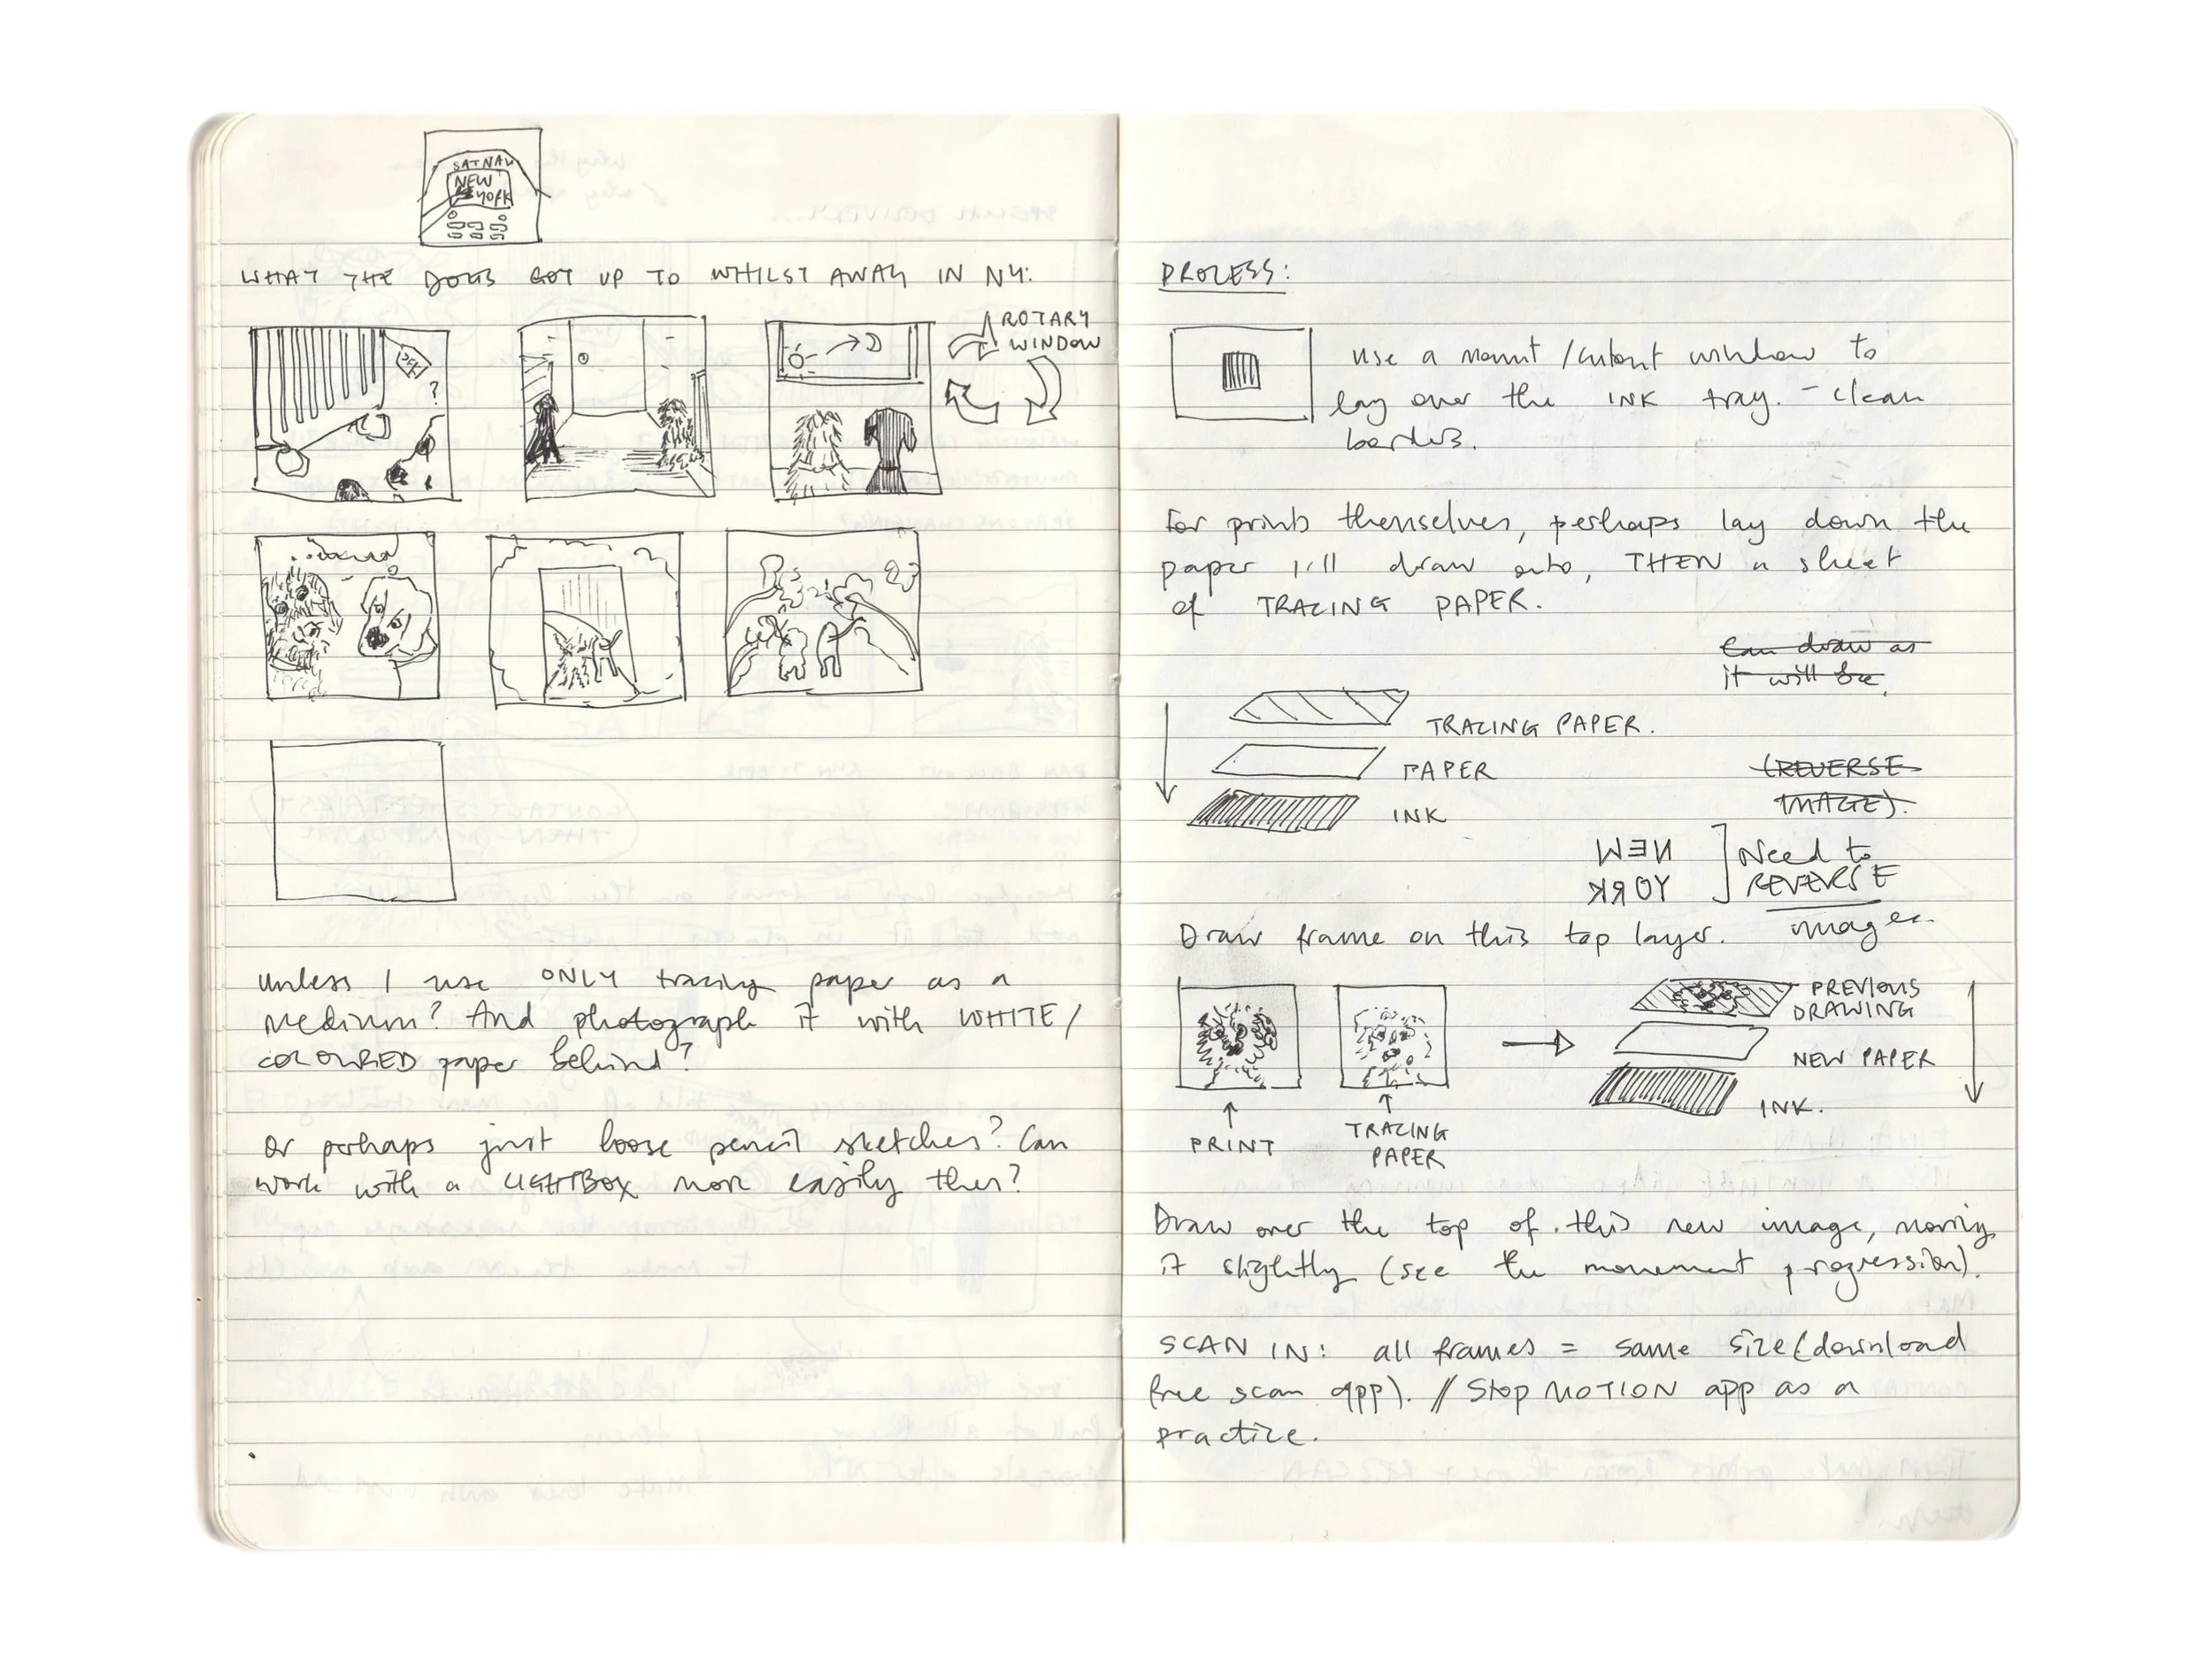 SATNAV
NEW
YORK
WHAT THE DOGS GOT UP TO WHILST AWAY IN NY:
ROTARY
WINDOW
?
unless I use ONLY tracing paper as a
medium? And photograph it with WHITE/
COLOURED paper behind?
Or perhaps just loose pencil sketches? Can
work with a LIGHTBOX more easily then?
PROCESS:
use a mount/cutout window to
lay over the INK tray. - clean
borders.
For prints themselves, perhaps lay down the
paper I'll draw onto, THEN a sheet
of TRACING PAPER.
Can draw as
it will be.
TRACING PAPER.
PAPER
INK
(REVERSE
IMAGE).
NEW
YORK
Need to
REVERSE
images.
Draw frame on this top layer.
PRINT
TRACING
PAPER
PREVIOUS
DRAWING
NEW PAPER
INK.
Draw over the top of this new image, moving
it slightly (see the movement progression).
SCAN IN: all frames = same size (download
free scan app). // Stop MOTION app as a
practice.